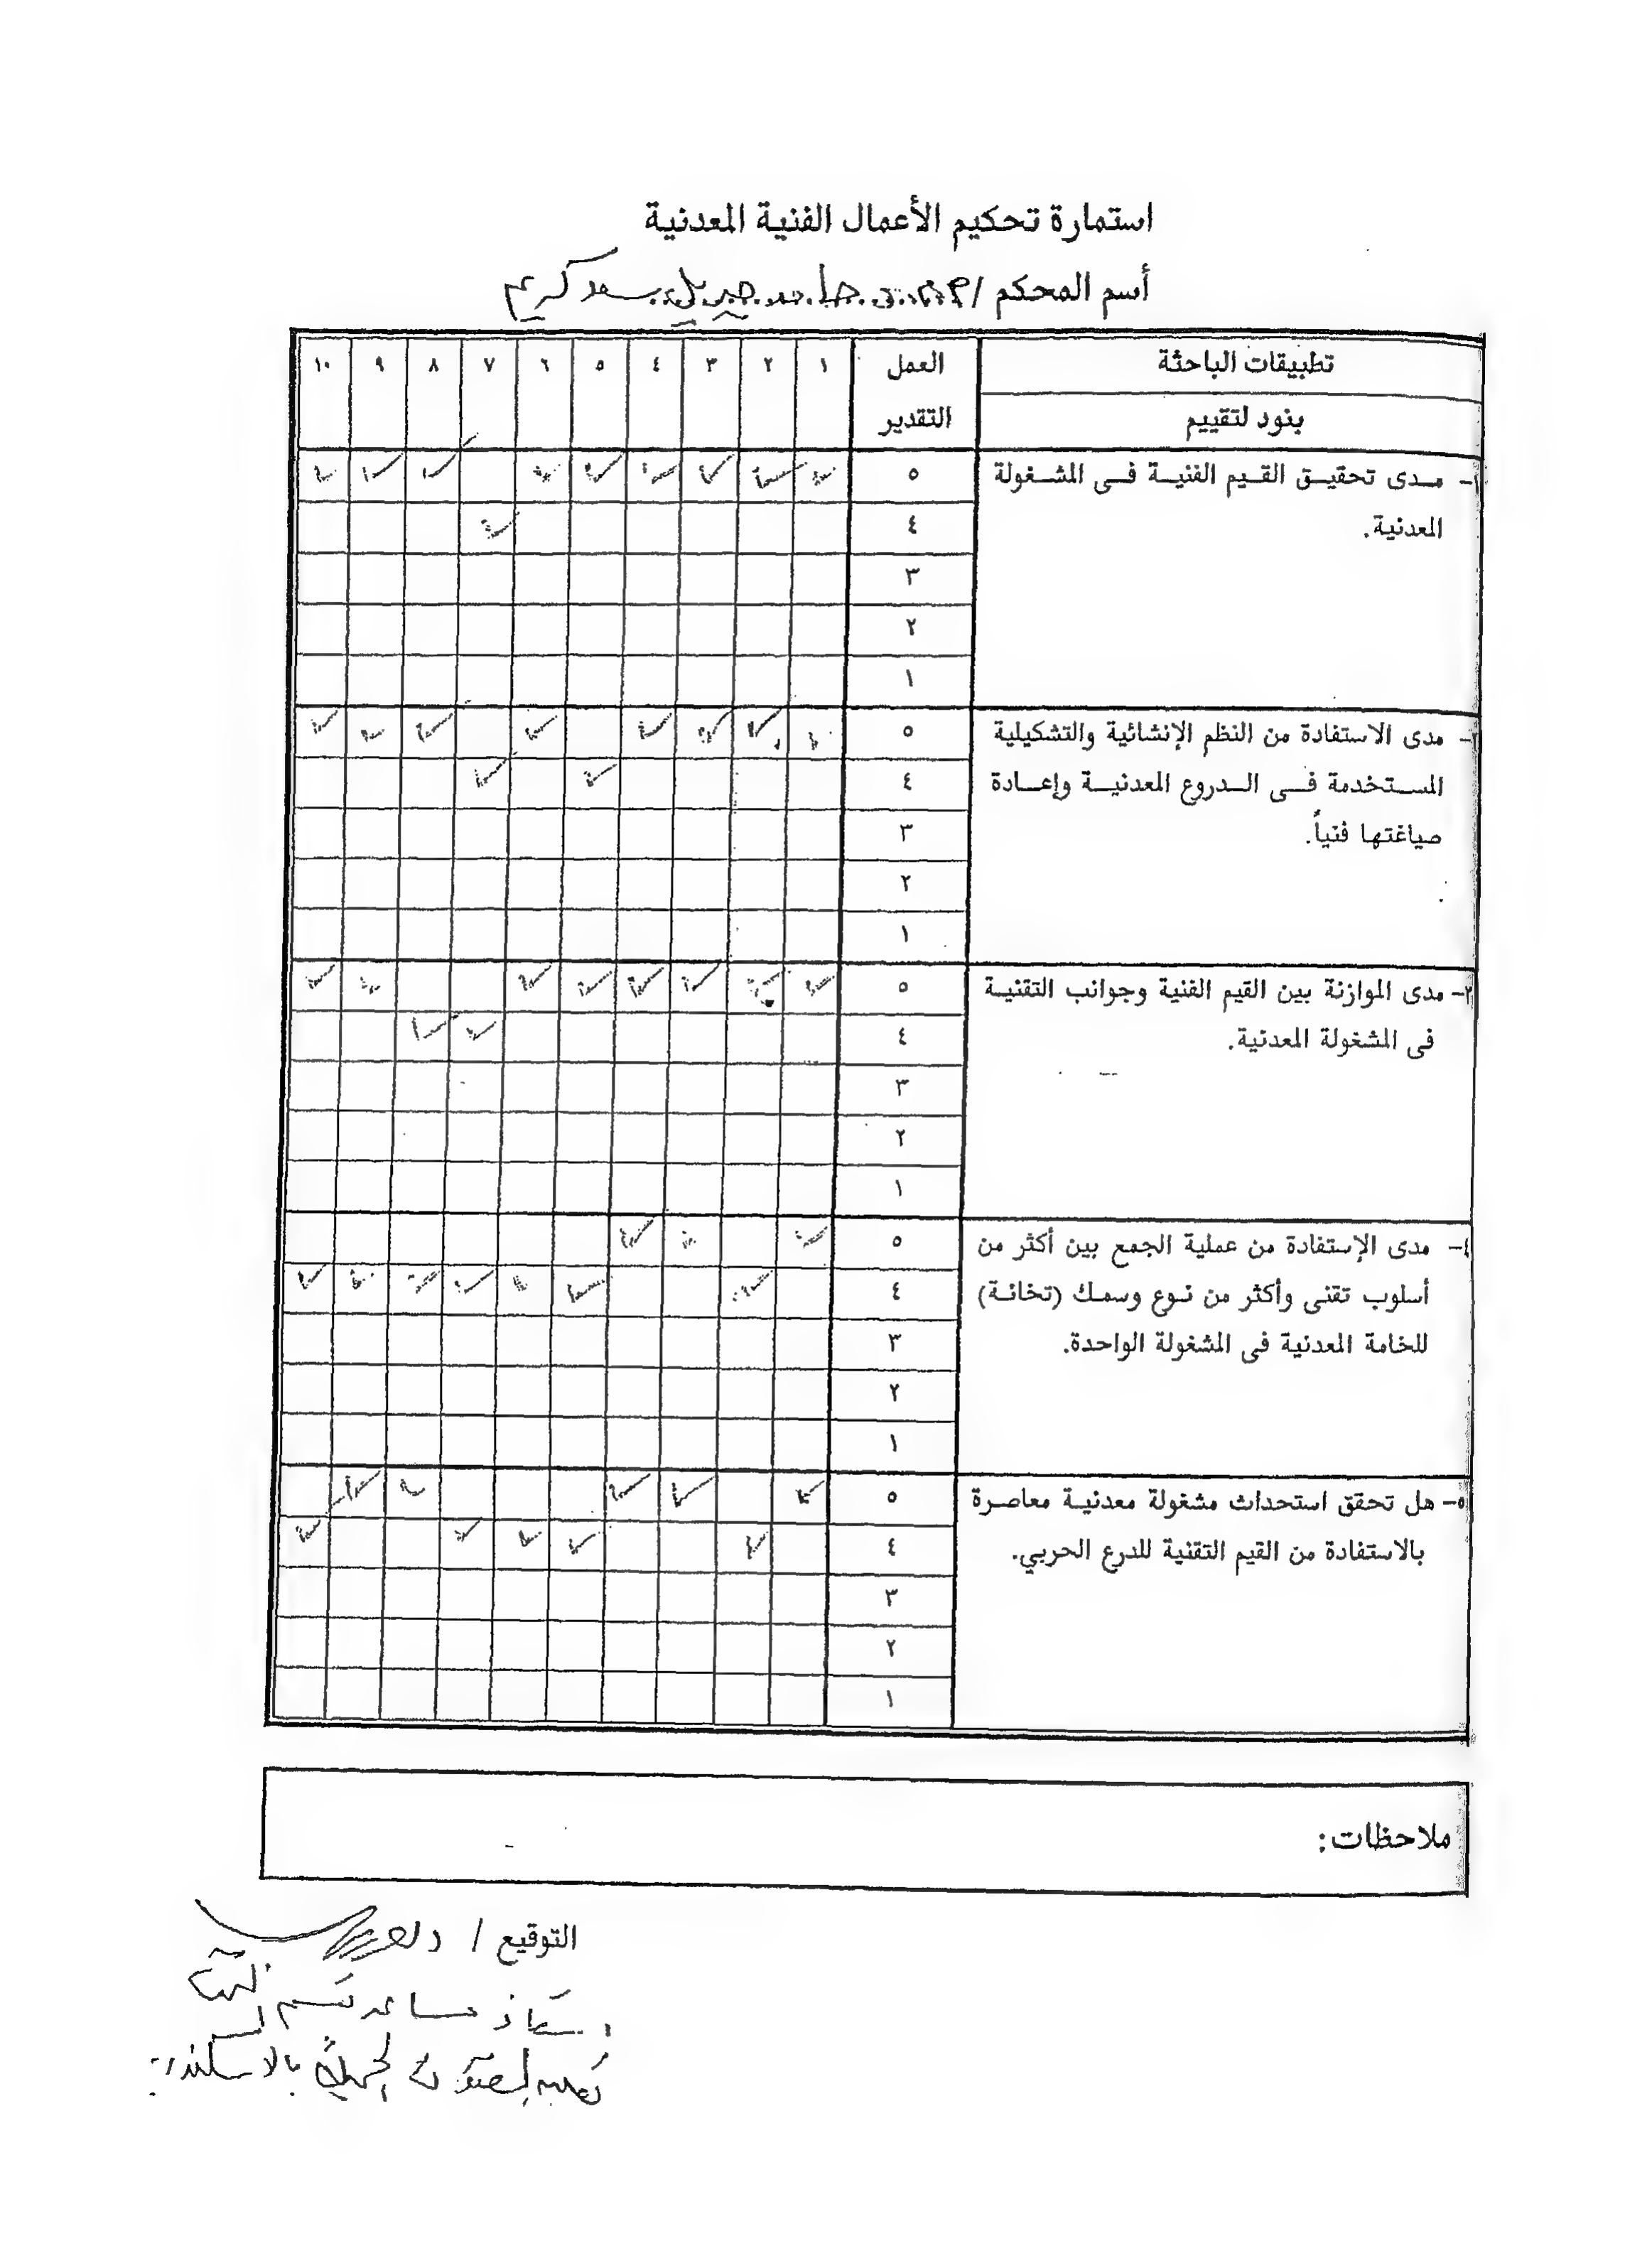 استمارة تحكيم الأعمال الفنية المعدنية
أسم المحكم /
تطبيقات الباحثة العمل ١ ٢ ٣ ٤ ٥ ٦ ٧ ٨ ٩ ١٠
بنود لتقييم التقدير
١- مـدى تحقيـق القـيم الفنيـة فـى المشـغولة ٥ ✓ ✓ ✓ ✓ ✓ ✓ ✓ ✓ ✓
المعدنية. ٤ ✓
٣
٢
١
٢- مدى الاستفادة من النظم الإنشائية والتشكيلية ٥ ✓ ✓ ✓ ✓ ✓ ✓ ✓ ✓
المسـتخدمة فـى الـدروع المعدنيـة وإعـادة ٤ ✓ ✓
صياغتها فنياً. ٣
٢
١
٣- مدى الموازنة بين القيم الفنية وجوانب التقنيـة ٥ ✓ ✓ ✓ ✓ ✓ ✓ ✓ ✓
فى المشغولة المعدنية. ٤ ✓ ✓
٣
٢
١
٤- مدى الإستفادة من عملية الجمع بين أكثر من ٥ ✓ ✓ ✓
أسلوب تقنى وأكثر من نـوع وسمـك (تخانـة) ٤ ✓ ✓ ✓ ✓ ✓ ✓ ✓
للخامة المعدنية فى المشغولة الواحدة. ٣
٢
١
٥- هل تحقق استحداث مشغولة معدنيـة معاصـرة ٥ ✓ ✓ ✓ ✓ ✓
بالاستفادة من القيم التقنية للدرع الحربي. ٤ ✓ ✓ ✓ ✓ ✓
٣
٢
١
ملاحظات:
التوقيع /
استاذ مساعد بقسم
بالاسكندرية